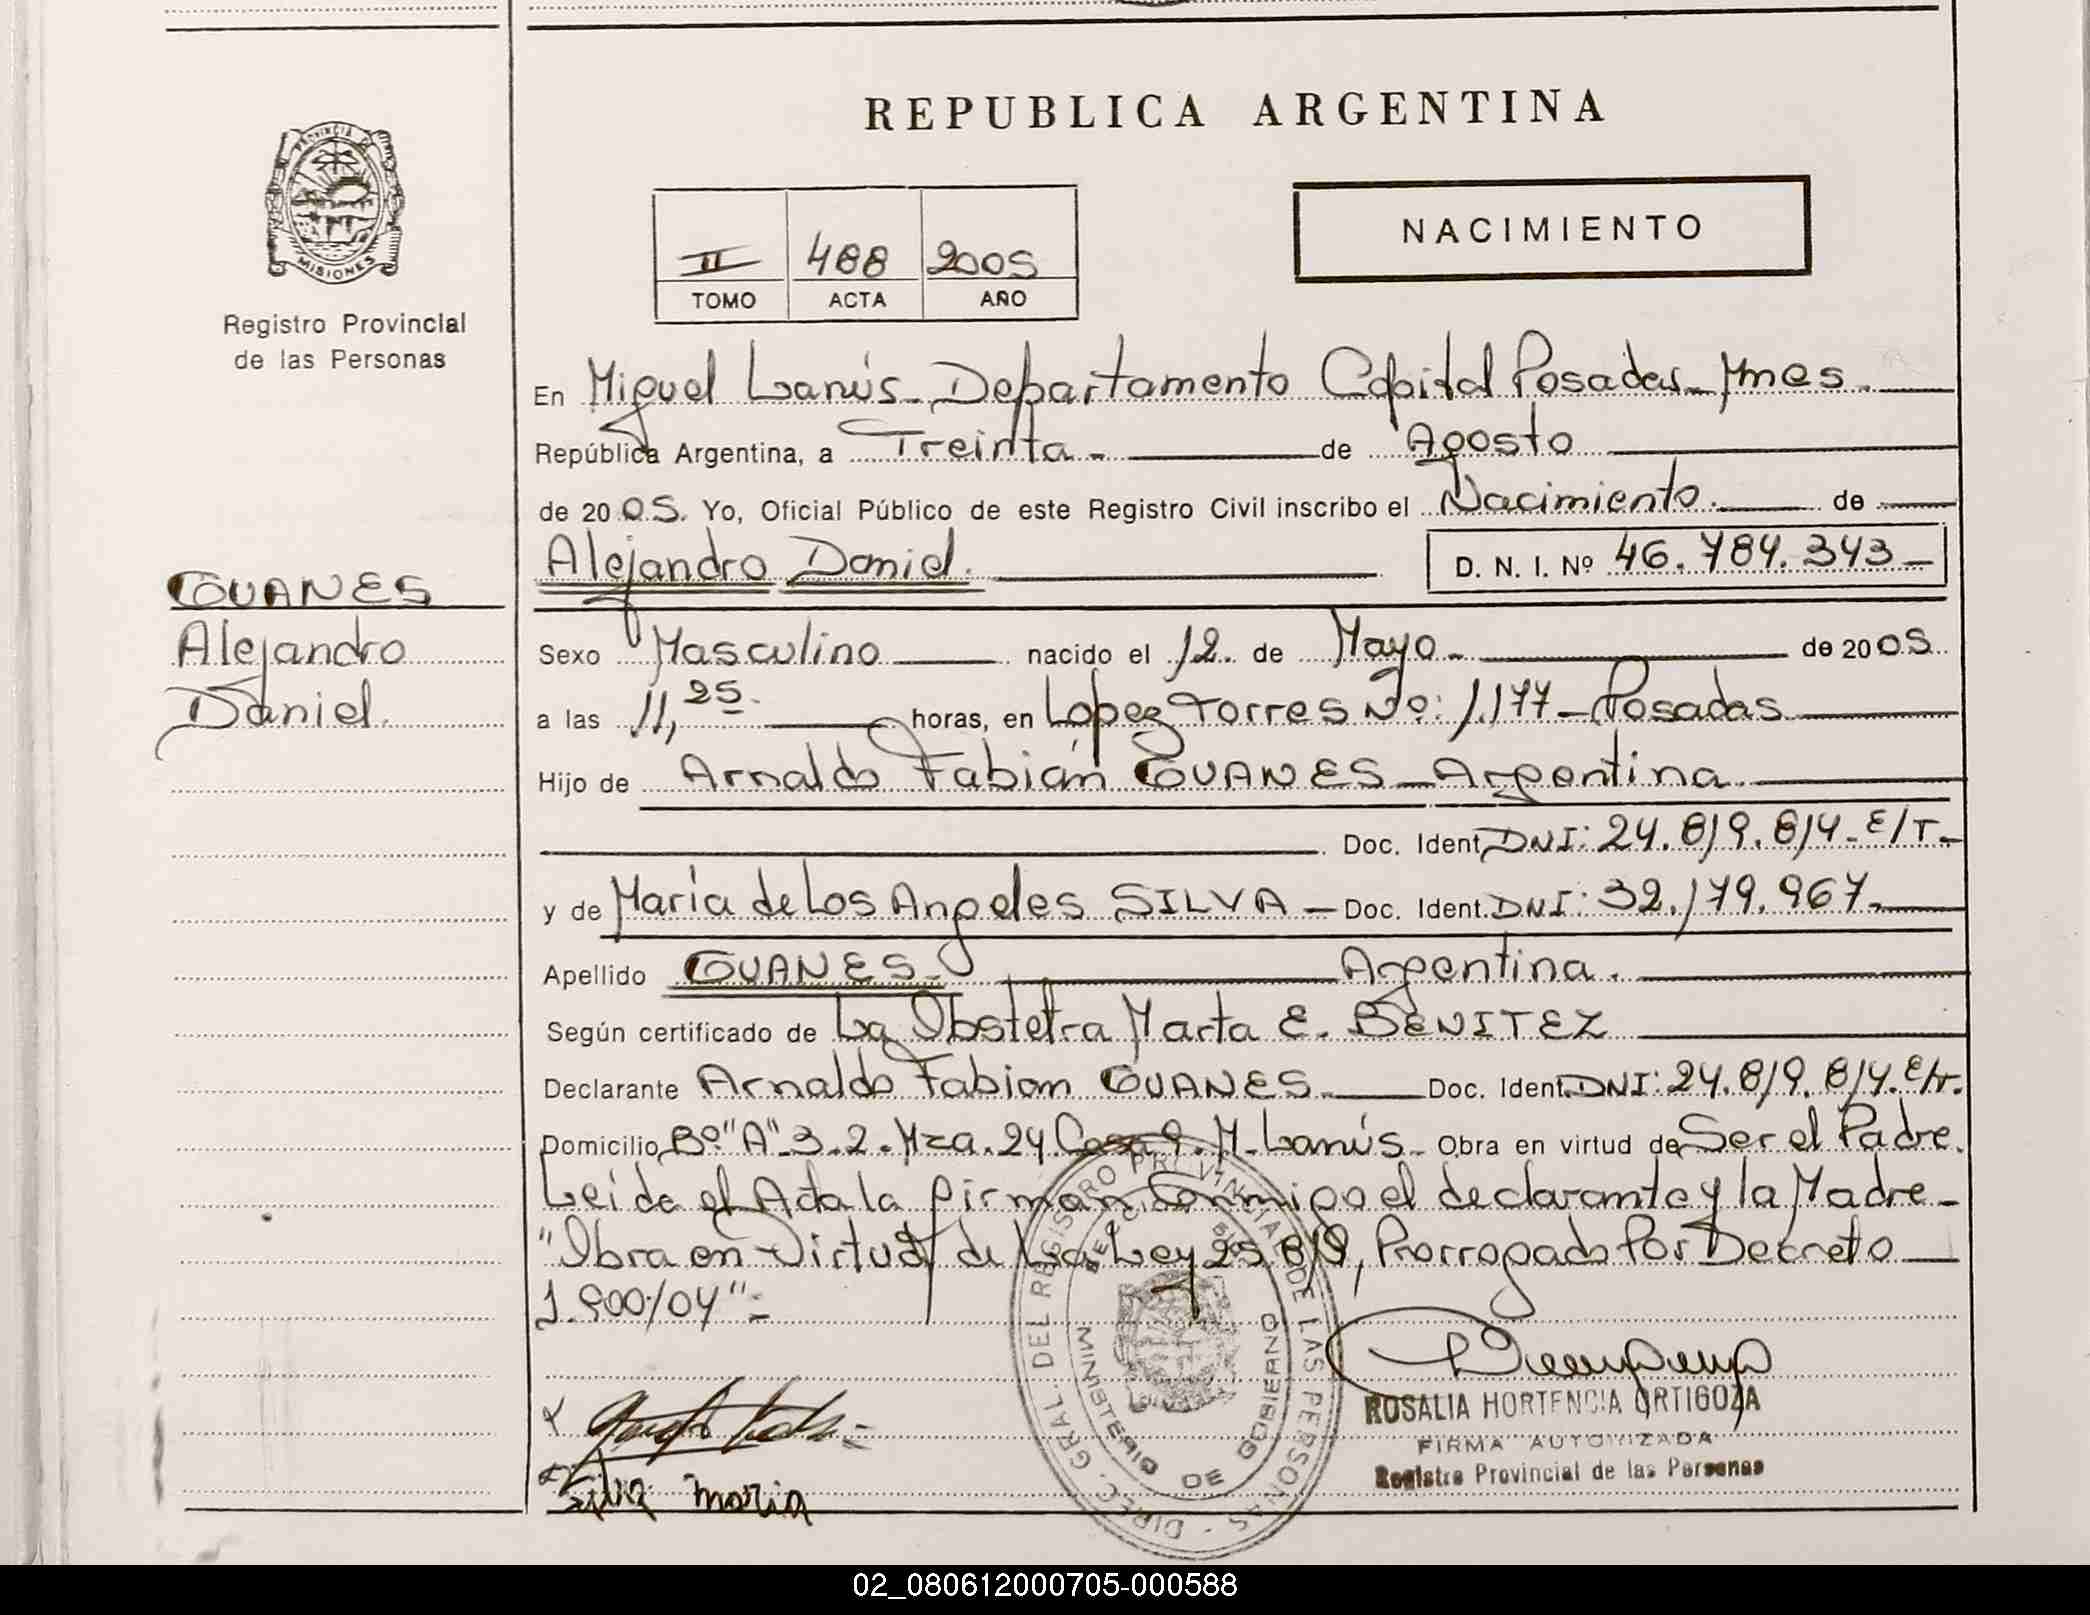 REPUBLICA ARGENTINA
PROVINCIA DE
MISIONES
Registro Provincial
de las Personas
II 488 2005
TOMO ACTA AÑO
NACIMIENTO
En Miguel Lanús - Departamento Capital Posadas - Mnes.
República Argentina, a Treinta - de Agosto
de 2005. Yo, Oficial Público de este Registro Civil inscribo el Nacimiento. de
Alejandro Daniel. D. N. I. Nº 46.784.343 -
GUANES
Alejandro
Daniel.
Sexo Masculino nacido el 12. de Mayo - de 2005.
a las 11,25. horas, en López Torres Nº: 1.177 - Posadas
Hijo de Arnaldo Fabián GUANES - Argentina
Doc. Ident. DNI: 24.819.814. E/T. -
y de María de Los Angeles SILVA - Doc. Ident. DNI: 32.179.967. -
Apellido GUANES - Argentina.
Según certificado de La Obstetra Marta E. BENITEZ
Declarante Arnaldo Fabian GUANES. Doc. Ident. DNI: 24.819.814. E/T.
Domicilio Bº. "A" - 3. 2. Mza. 24. Casa 9. M. Lanús - Obra en virtud de Ser el Padre.
Leida el Acta la firman conmigo el declarante y la Madre -
"Obra en Virtud de La Ley 25.819, Prorrogado Por Decreto
1.900/04" =
DIREC. GRAL. DEL REGISTRO PROVINCIAL DE LAS PERSONAS -
MINISTERIO DE GOBIERNO
ROSALIA HORTENCIA ORTIGOZA
FIRMA AUTORIZADA
Registro Provincial de las Personas
Silva maria
02_080612000705-000588